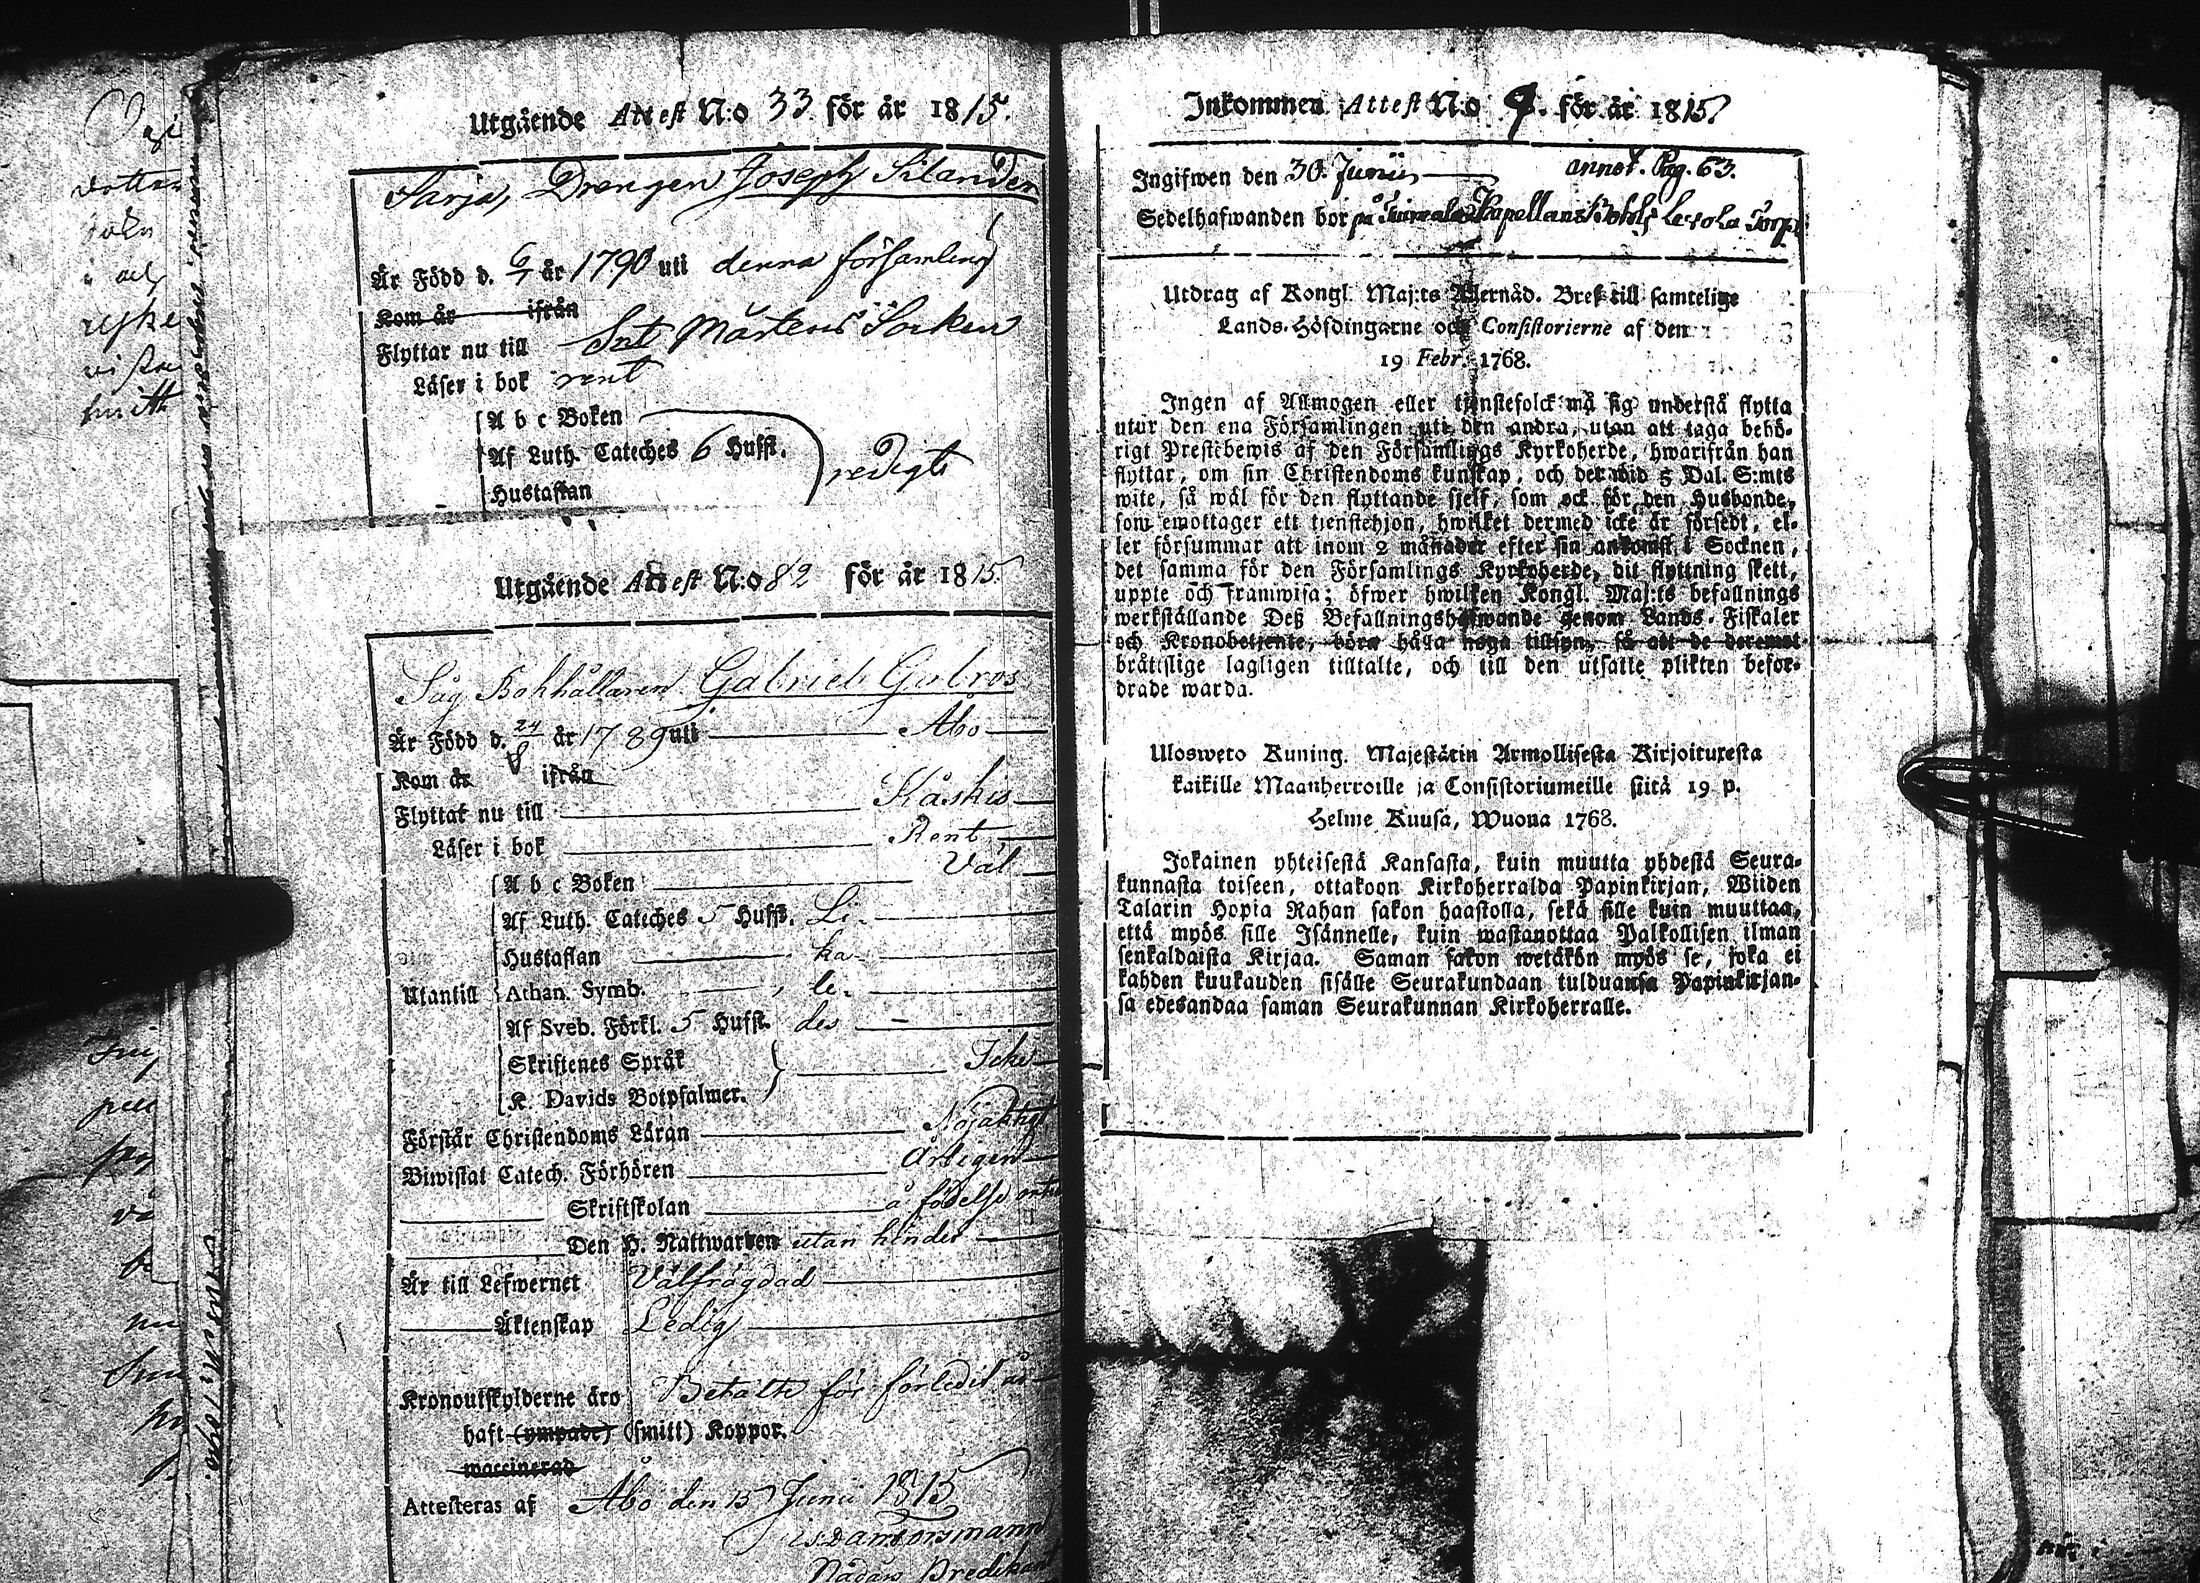 Utgående Attest N:o 33 för år 1815.
Sarja, Drengen Joseph Silander
Är Född d. 6/7 år 1790 uti denna församling
Kom år ifrån
Flyttar nu till Snt Mårtens Socken
Läser i bok rent
A b c Boken
Af Luth. Cateches 6 Hufst.
Hustaflan
redigt
Utgående Attest N:o 82 för år 1815.
Såg Bokhållaren Gabriel
Är Född d. 24/8 år 1789 uti Åbo
Kom år ifrån
Flyttar nu till Kåskis
Läser i bok Rent
A b c Boken Väl
Af Luth. Cateches 5 Hufst. Li-
Hustaflan ka-
Utantill Athan. Symb. le-
Af Sveb. Förkl. 5 Hufst. des
Skriftenes Språk
K. Davids Botpsalmer. Icke
Förstår Christendoms Läran Nöjaktigt
Biwistat Catech. Förhören Årligen
Skriftskolan å födelse orten
Den H. Nattwarden utan hinder
Är till Lefwernet Välfrägdad
Äktenskap Ledig
Kronoutskylderne äro Betalte för förledit år
haft (ympade) (smitt) Koppor.
waccinerad
Attesteras af Åbo den 15 Junii 1815
Nådårs Predikant
Inkommen Attest N:o 9. för år 1815
Ingifwen den 30. Junii annot. Pag. 63.
Sedelhafwanden bor på Kapellans Torp
Utdrag af Kongl. Maj:ts Allernåd. Bref till samtelige
Lands-Höfdingarne och Consistorierne af den
19 Febr. 1768.
Ingen af Allmogen eller tjenstefolck må sig understå flytta
utur den ena Församlingen uti den andra, utan att taga behö-
rigt Prestebewis af den Församlings Kyrkoherde, hwarifrån han
flyttar, om sin Christendoms kunskap, och det wid 5 Dal. S:mts
wite, så wäl för den flyttande sjelf, som ock för den Husbonde,
som emottager ett tjenstehjon, hwilket dermed icke är försedt, el-
ler försummar att inom 2 månader efter sin ankomst i Socknen,
det samma för den Församlings Kyrkoherde, dit flyttning skett,
uppte och framwisa; öfwer hwilken Kongl. Maj:ts befallnings
werkställande Deß Befallningshafwande genom Lands-Fiskaler
och Kronobetjente, böra hålla noga tillsyn, så att de deremot
bråttslige lagligen tilltalte, och till den utsatte plikten befor-
drade warda.
Ulosweto Kuning. Majestätin Armollisesta Kirjoituxesta
kaikille Maanherroille ja Consistoriumeille siitä 19 p.
Helme Kuusa, Wuona 1768.
Jokainen yhteisestä Kansasta, kuin muutta yhdestä Seura-
kunnasta toiseen, ottakoon Kirkoherralda Papinkirjan, Wiiden
Talarin Hopia Rahan sakon haastolla, sekä sille kuin muuttaa,
että myös sille Isännelle, kuin wastanottaa Palkollisen ilman
senkaldaista Kirjaa. Saman sakon wetäkön myös se, joka ei
kahden kuukauden sisälle Seurakundaan tulduansa Papinkirjan-
sa edesandaa saman Seurakunnan Kirkoherralle.